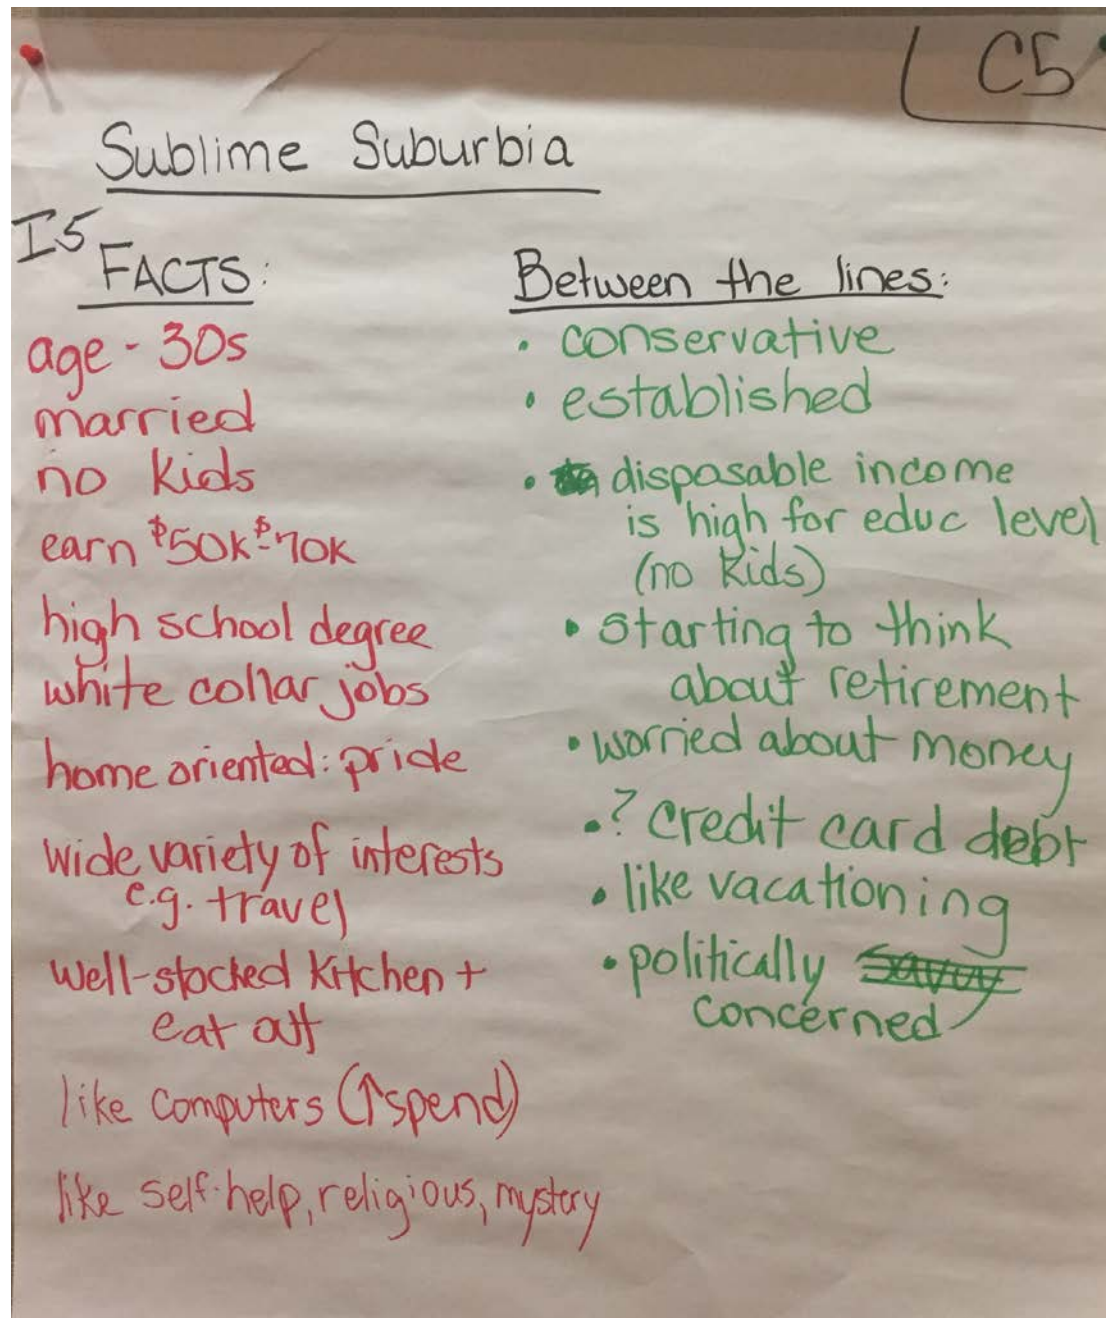 C5
Sublime Suburbia
I5
FACTS:
age - 30s
married
no kids
earn $50k-$70k
high school degree
white collar jobs
home oriented: pride
wide variety of interests
e.g. travel
well-stocked kitchen +
eat out
like computers (↑spend)
like self-help, religious, mystery
Between the lines:
• conservative
• established
• disposable income
is high for educ level
(no kids)
• starting to think
about retirement
• worried about money
• ? credit card debt
• like vacationing
• politically savvy
concerned